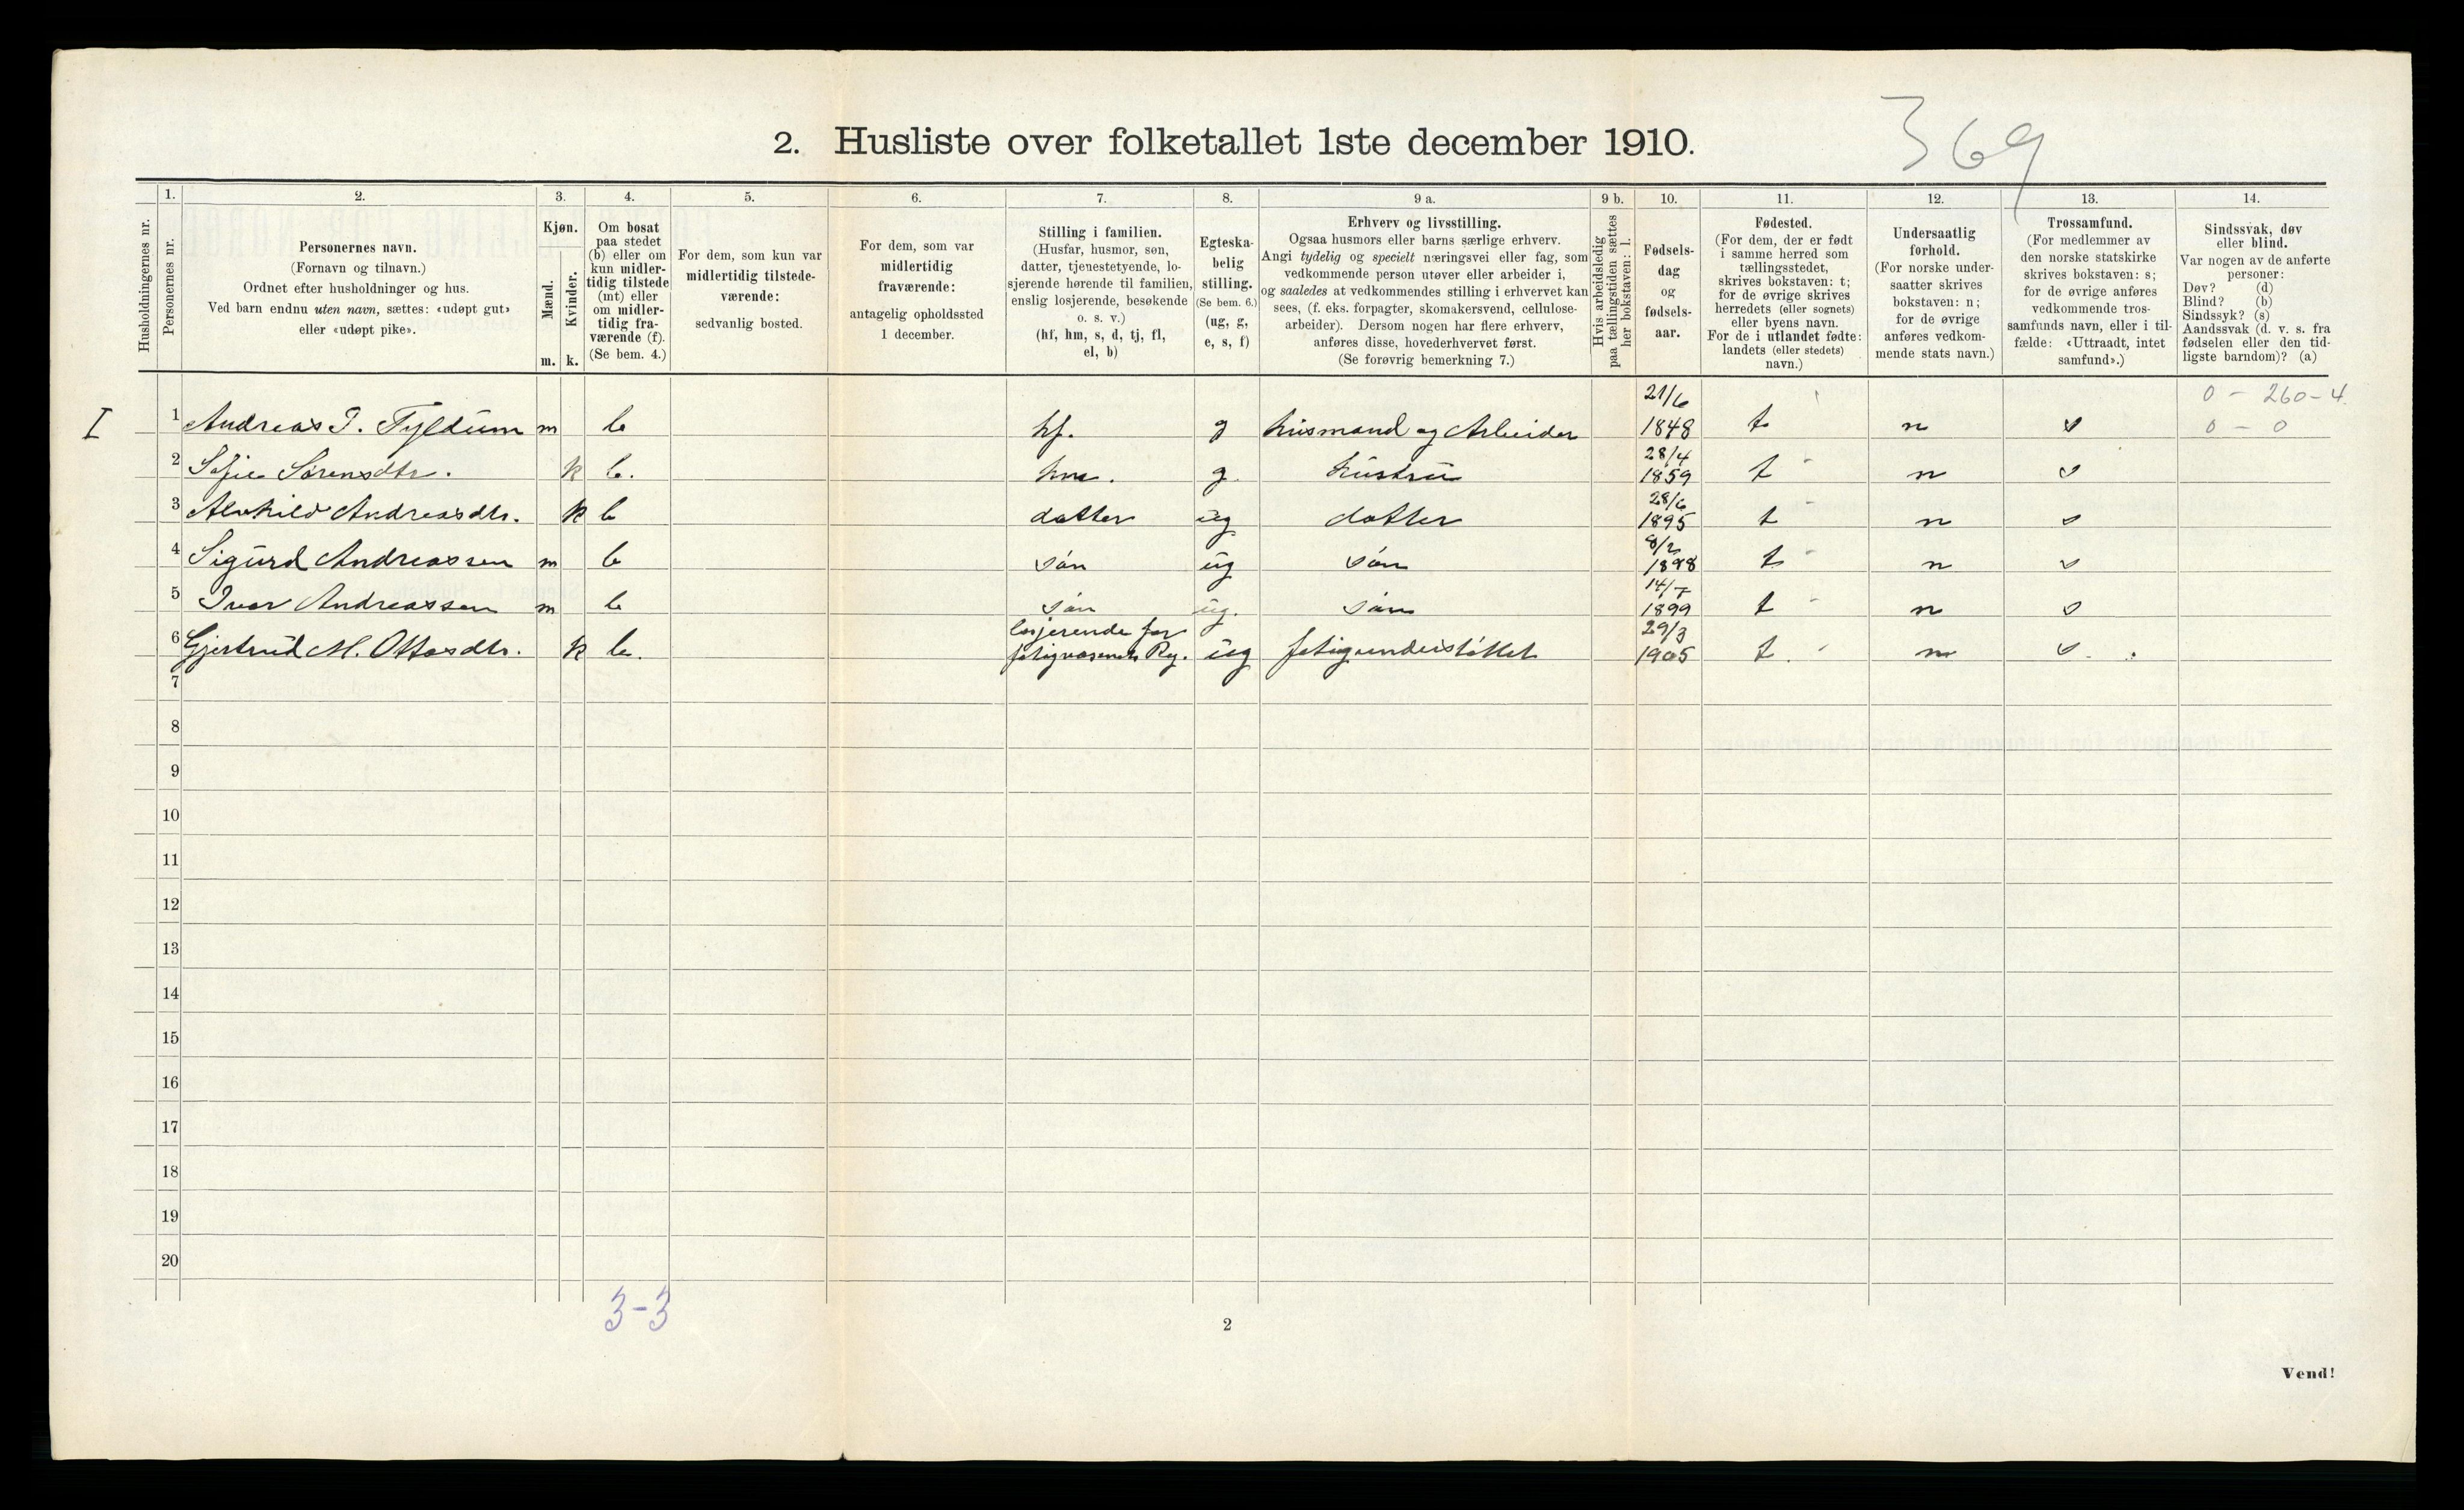 369
2. Husliste over folketallet 1ste december 1910.
Husholdningernes nr.
1. Personernes nr.
2. Personernes navn.
(Fornavn og tilnavn.)
Ordnet efter husholdninger og hus.
Ved barn endnu uten navn, sættes: «udøpt gut»
eller «udøpt pike».
3. Kjøn.
Mænd. m.
Kvinder. k.
4. Om bosat
paa stedet
(b) eller om
kun midler-
tidig tilstede
(mt) eller
om midler-
tidig fra-
værende (f).
(Se bem. 4.)
5. For dem, som kun var
midlertidig tilstede-
værende:
sedvanlig bosted.
6. For dem, som var
midlertidig
fraværende:
antagelig opholdssted
1 december.
7. Stilling i familien.
(Husfar, husmor, søn,
datter, tjenestetyende, lo-
sjerende hørende til familien,
enslig losjerende, besøkende
o. s. v.)
(hf, hm, s, d, tj, fl,
el, b)
8. Egteska-
belig
stilling.
(Se bem. 6.)
(ug, g,
e, s, f)
9 a. Erhverv og livsstilling.
Ogsaa husmors eller barns særlige erhverv.
Angi tydelig og specielt næringsvei eller fag, som
vedkommende person utøver eller arbeider i,
og saaledes at vedkommendes stilling i erhvervet kan
sees, (f. eks. forpagter, skomakersvend, cellulose-
arbeider). Dersom nogen har flere erhverv,
anføres disse, hovederhvervet først.
(Se forøvrig bemerkning 7.)
9 b. Hvis arbeidsledig
paa tællingstiden sættes
her bokstaven: l.
10. Fødsels-
dag
og
fødsels-
aar.
11. Fødested.
(For dem, der er født
i samme herred som
tællingsstedet,
skrives bokstaven: t;
for de øvrige skrives
herredets (eller sognets)
eller byens navn.
For de i utlandet fødte:
landets (eller stedets)
navn.)
12. Undersaatlig
forhold.
(For norske under-
saatter skrives
bokstaven: n;
for de øvrige
anføres vedkom-
mende stats navn.)
13. Trossamfund.
(For medlemmer av
den norske statskirke
skrives bokstaven: s;
for de øvrige anføres
vedkommende tros-
samfunds navn, eller i til-
fælde: «Uttraadt, intet
samfund».)
14. Sindssvak, døv
eller blind.
Var nogen av de anførte
personer:
Døv? (d)
Blind? (b)
Sindssyk? (s)
Aandssvak (d. v. s. fra
fødselen eller den tid-
ligste barndom)? (a)
I 1 Andreas P. Tyldum m b hf. g husmand og Arbeider 21/6 1848 t n s 0 - 260 - 4 0 - 0
2 Sofie Sørensdtr. k b. hm. g. hustru 28/4 1859 t n s
3 Alvhild Andreasdtr. k b datter ug datter 28/6 1895 t n s
4 Sigurd Andreassen m b søn ug søn 8/2 1898 t n s
5 Ivar Andreassen m b søn ug. søn 14/7 1899 t n s
6 Gjertrud M. Ottosdtr. k b. losjerende for fatigvæsenets Reg. ug fatigunderstøttet 29/3 1905 t. n s.
7
8
9
10
11
12
13
14
15
16
17
18
19
20
3-3
2
Vend!